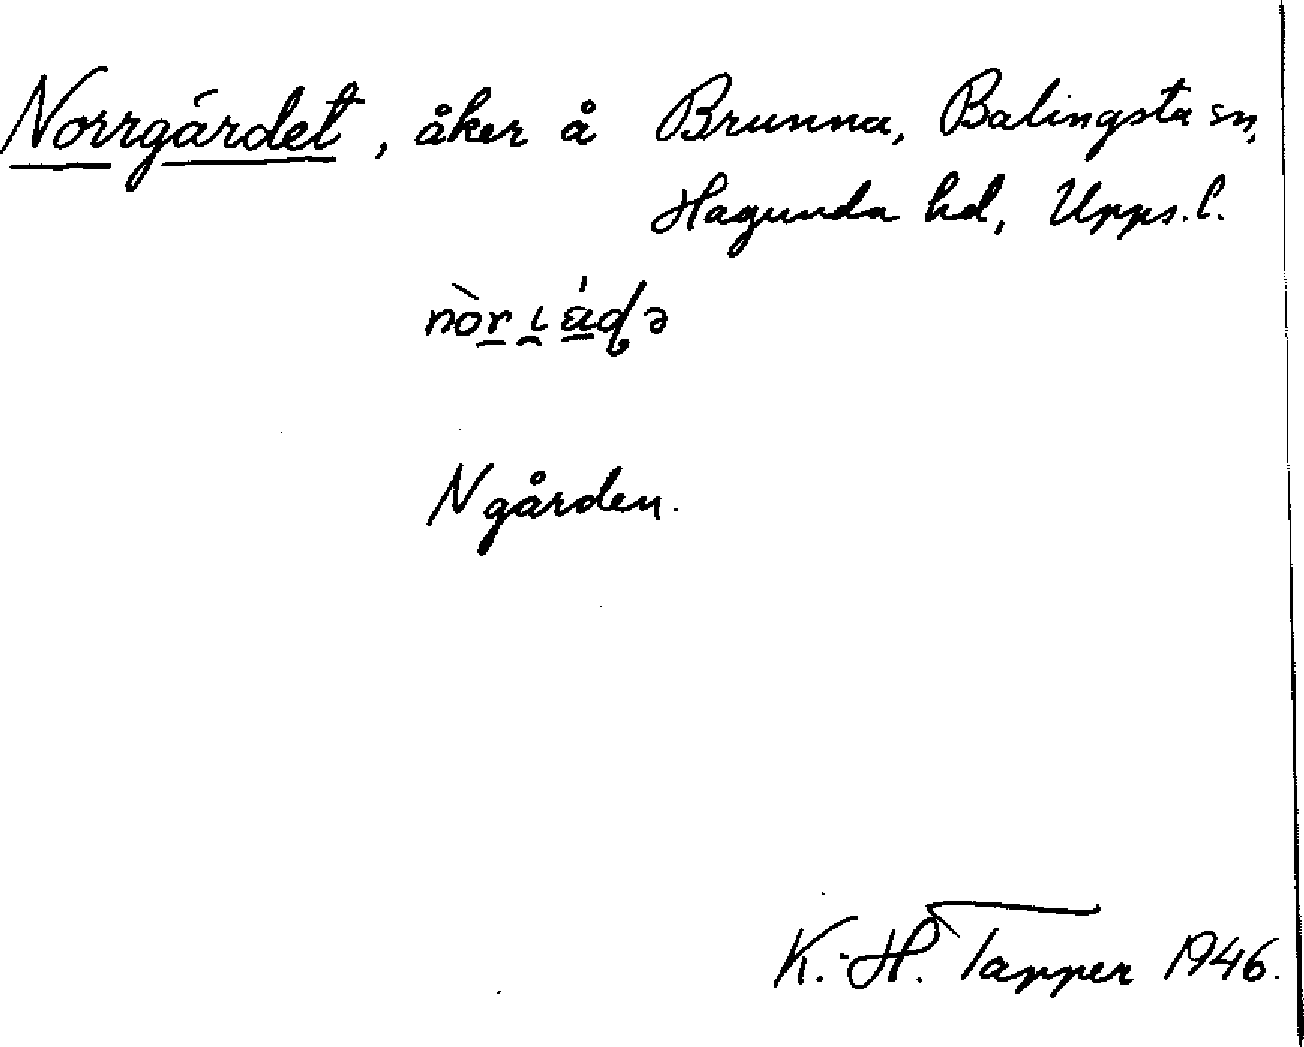 Norrgärdet, åker å Brunna, Balingsta sn,
Hagunda hd, Upps. l.
N gården.
K.-H. Tapper 1946.